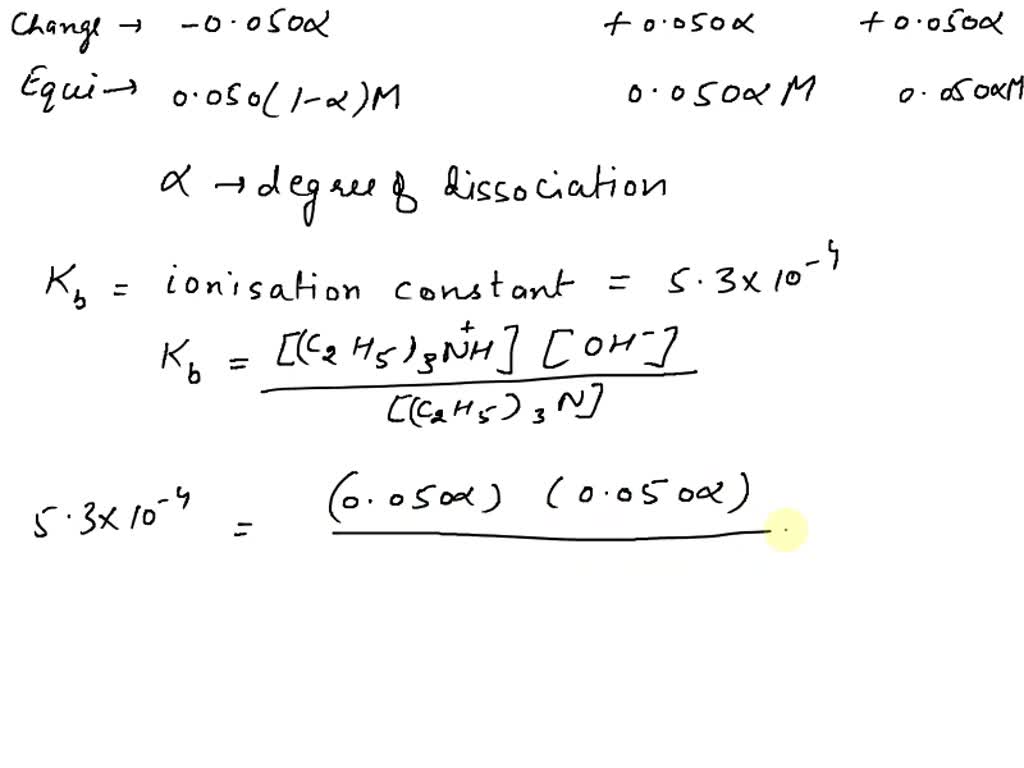 Change → -0.050α +0.050α +0.050α
Equi → 0.050(1-α)M 0.050αM 0.050αM
α → degree of dissociation
K_b = ionisation constant = 5.3×10⁻⁴
K_b = [(C₂H₅)₃N⁺H] [OH⁻]
[(C₂H₅)₃N]
5.3×10⁻⁴ = (0.050α) (0.050α)